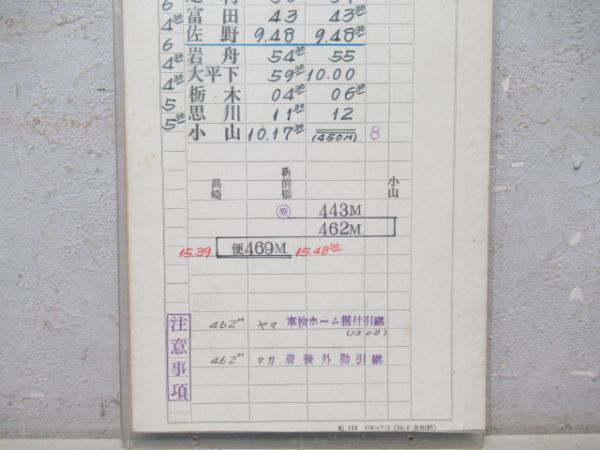 6 足利 30 31
4³⁰ 富田 43 43³⁰
6 佐野 9.48 9.48³⁰
4³⁰ 岩舟 54³⁰ 55
4³⁰ 大平下 59³⁰ 10.00
5 栃木 04³⁰ 06³⁰
5³⁰ 思川 11³⁰ 12
小山 10.17³⁰ (450M) 8
高崎 新前橋 小山
443M
462M
15.39 便469M 15.48³⁰
注意事項
462M ヤマ 車検ホーム据付引継
(13.08)
462M タカ 着後外勤引継